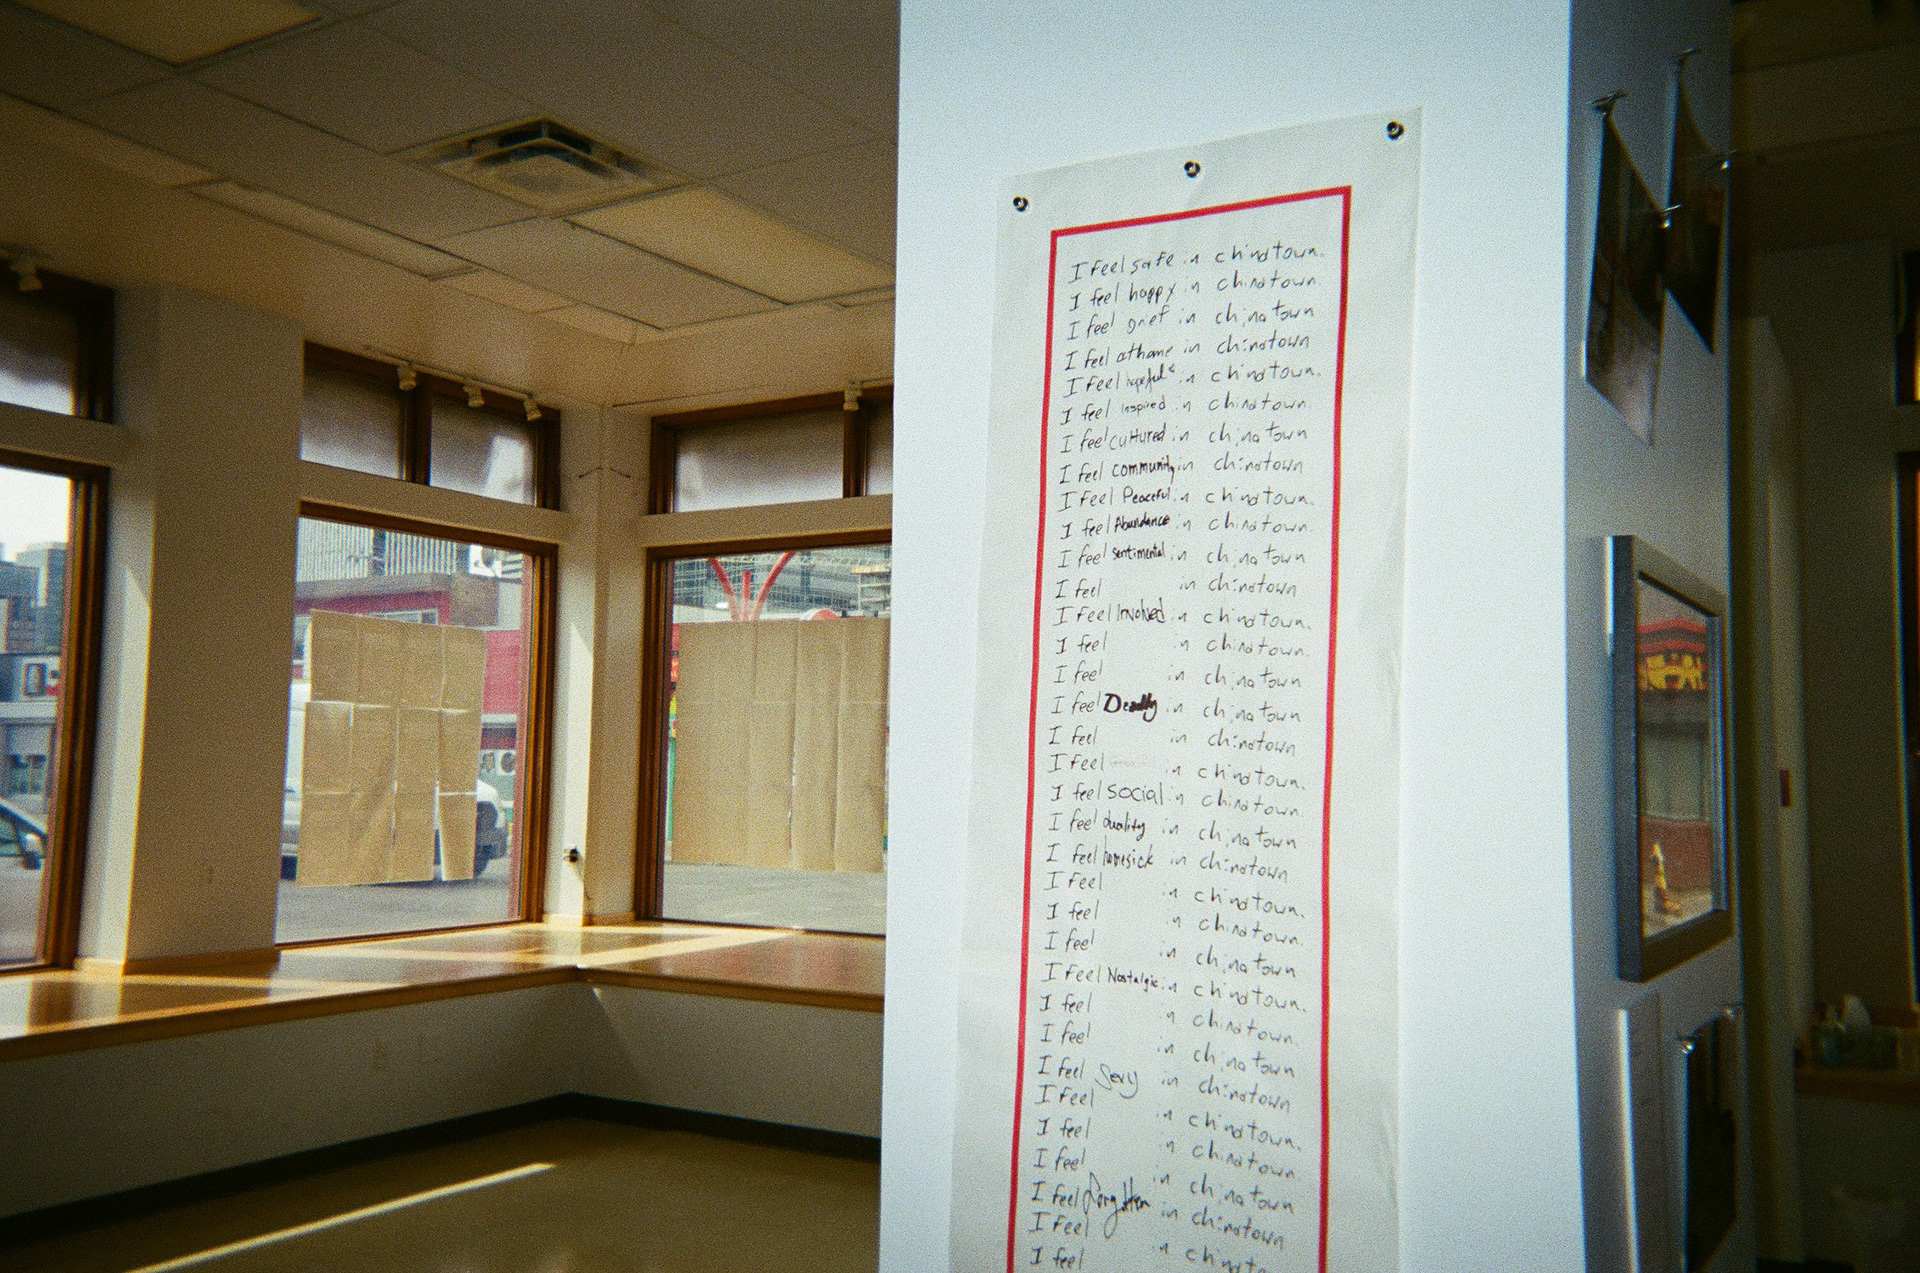 I feel safe in chinatown.
I feel happy in chinatown.
I feel grief in chinatown
I feel at home in chinatown
I feel hopeful in chinatown.
I feel Inspired in chinatown.
I feel cultured in chinatown
I feel community in chinatown
I feel Peaceful in chinatown.
I feel Abundance in chinatown.
I feel sentimental in chinatown
I feel in chinatown
I feel Involved in chinatown.
I feel in chinatown.
I feel in chinatown
I feel Deadly in chinatown
I feel in chinatown
I feel in chinatown.
I feel social in chinatown.
I feel duality in chinatown
I feel homesick in chinatown
I feel in chinatown.
I feel in chinatown.
I feel in chinatown
I feel Nostalgic in chinatown.
I feel in chinatown.
I feel in chinatown
I feel Sexy in chinatown
I feel in chinatown.
I feel in chinatown.
I feel in chinatown
I feel forgotten in chinatown
I feel
I feel in